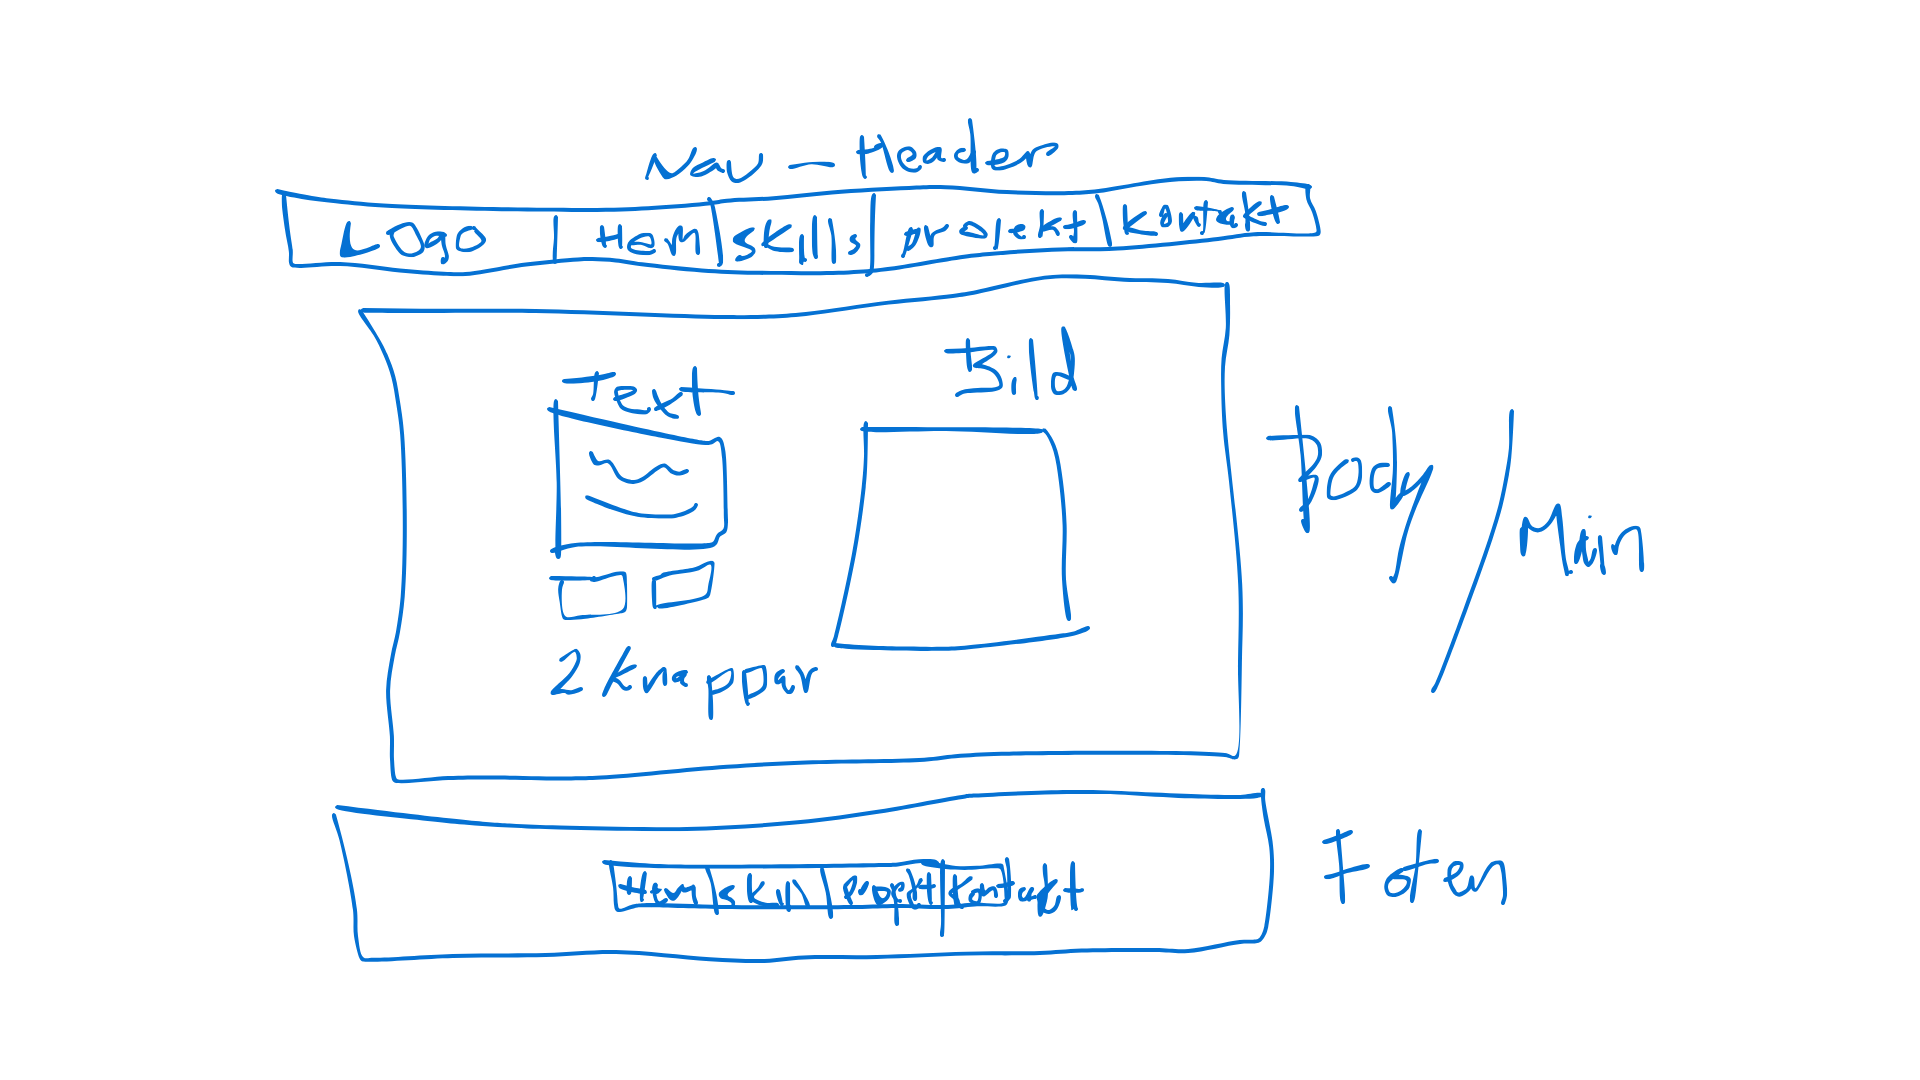 Nav - Header
Logo Hem skills projekt kontakt
Text
Bild
2 knappar
Body / Main
Hem skill Projekt kontakt
Foten